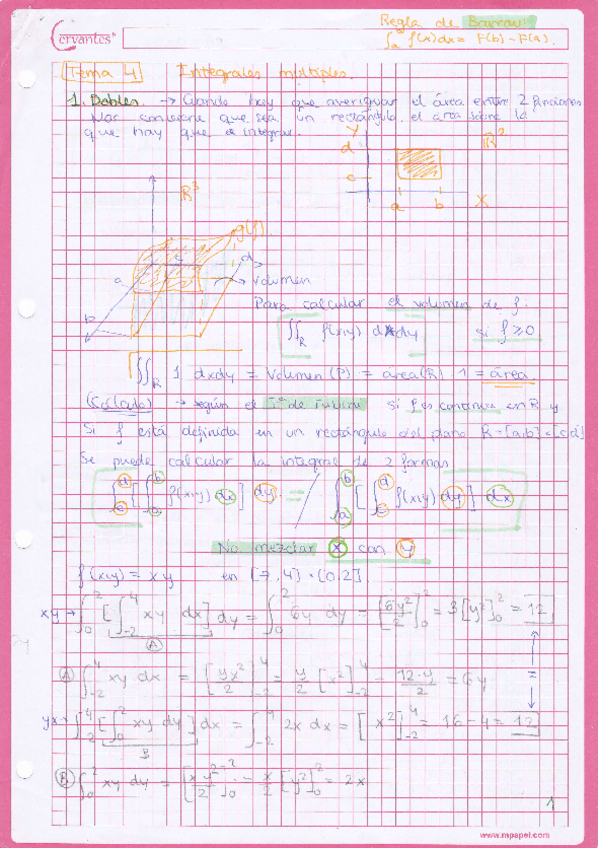 Cervantes
Regla de Barrow:
∫ₐ f(x)dx = F(b) - F(a).
Tema 4 Integrales múltiples.
1. Dobles. → Cuando hay que averiguar el área entre 2 funciones
Nos conviene que sea un rectángulo el area sobre la
que hay que integrar.
y
d
c
a b X
R²
R³
g(f)
a c d
b
→ Volumen
Para calcular el volumen de f.
∬_R f(x,y) dxdy si f ≥ 0
∬_R 1 dxdy = Volumen (P) = area(R) · 1 = área.
(Cálculo) → según el Tª de Fubini si f es continua en R y
Si f está definida en un rectángulo del plano R = [a,b] × [c,d]
Se puede calcular la integral de 2 formas
∫_c^d [∫_a^b f(x,y) dx] dy = ∫_a^b [∫_c^d f(x,y) dy] dx
No mezclar x con y
f(x,y) = xy en [-2,4] × [0,2]
xy → ∫_0^2 [∫_-2^4 xy dx] dy = ∫_0^2 6y dy = [6y²/2]_0^2 = 3[y²]_0^2 = 12
A
(A) ∫_-2^4 xy dx = [yx²/2]_-2^4 = y/2 [x²]_-2^4 = 12·y/2 = 6y
=
yx → ∫_-2^4 [∫_0^2 xy dy] dx = ∫_-2^4 2x dx = [x²]_-2^4 = 16 - 4 = 12
B
(B) ∫_0^2 xy dy = [xy²/2]_0^2 = x/2 [y²]_0^2 = 2x
1
www.mpapel.com